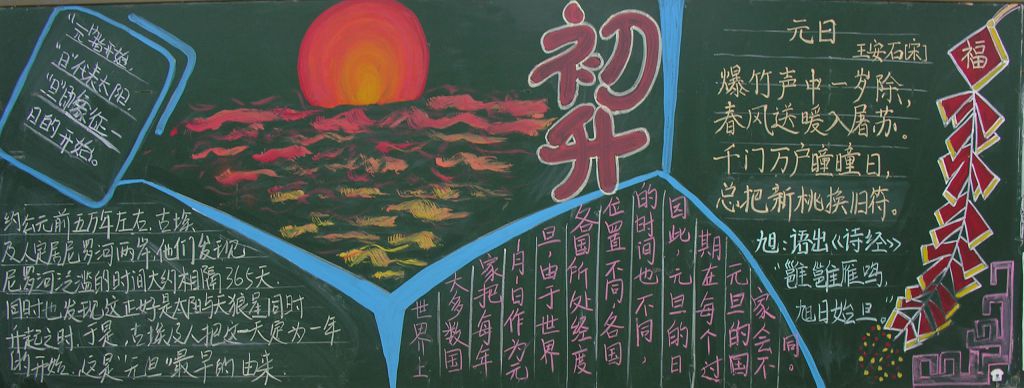 “元”者开始.
“日”代表太阳.
“旦”即象征一
日的开始。
初升
约公元前五万年左右,古埃
及人定居尼罗河两岸,他们发现
尼罗河泛滥的时间大约相隔365天.
同时也发现,这正好是太阳与天狼星同时
升起之时.于是,古埃及人把这一天定为一年
的开始,这是“元旦”最早的由来.
世界上
大多数国
家把每年
1月1日作为元
旦,由于世界
各国所处经度
位置不同,各国
的时间也不同,
因此,元旦的日
期在每个过
元旦的国
家会不
同。
元日
王安石[宋]
爆竹声中一岁除,
春风送暖入屠苏。
千门万户曈曈日,
总把新桃换旧符。
旭:语出《诗经》
“雝雝雁鸣,
旭日始旦。”
福